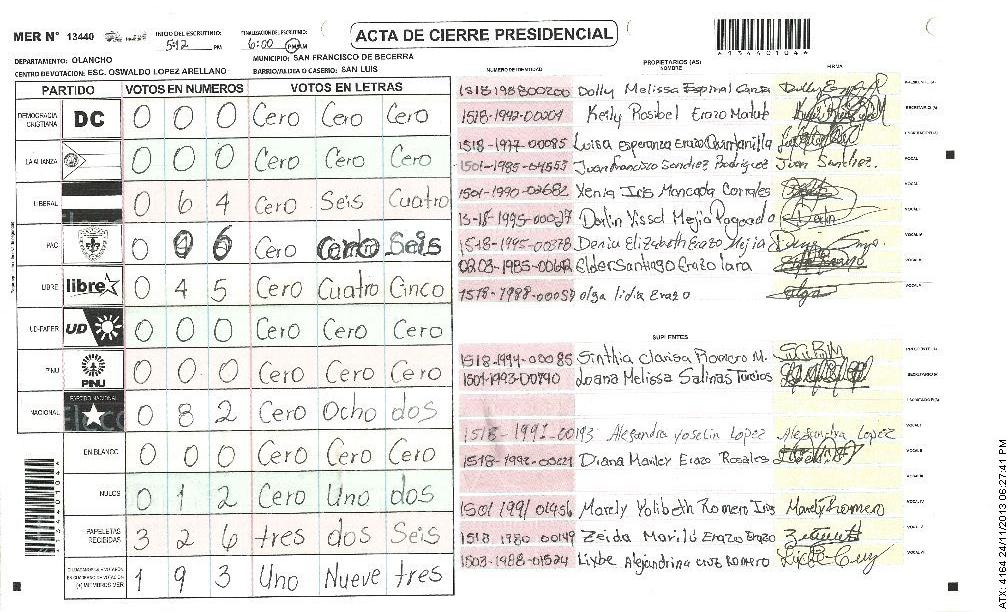 MER N° 13440
INICIO DEL ESCRUTINIO: 5:42 PM
FINALIZACION DEL ESCRUTINIO: 6:00 PM
ACTA DE CIERRE PRESIDENCIAL
DEPARTAMENTO: OLANCHO
MUNICIPIO: SAN FRANCISCO DE BECERRA
CENTRO DE VOTACION: ESC. OSWALDO LOPEZ ARELLANO
BARRIO/ALDEA O CASERIO: SAN LUIS
PARTIDO VOTOS EN NUMEROS VOTOS EN LETRAS
DEMOCRACIA CRISTIANA DC 0 0 0 Cero Cero Cero
LA ALIANZA 0 0 0 Cero Cero Cero
LIBERAL 0 6 4 Cero Seis Cuatro
PAC 0 6 Cero Seis
LIBRE libre 0 4 5 Cero Cuatro Cinco
UD-FAPER UD 0 0 0 Cero Cero Cero
PINU PINU 0 0 0 Cero Cero Cero
NACIONAL PARTIDO NACIONAL 0 8 2 Cero Ocho dos
EN BLANCO 0 0 0 Cero Cero Cero
NULOS 0 1 2 Cero Uno dos
PAPELETAS RECIBIDAS 3 2 6 tres dos Seis
1 9 3 Uno Nueve tres
NUMERO DE IDENTIDAD PROPIETARIOS (AS) NOMBRE FIRMA
Dolly Melissa Espinal
1518-1992-00201 Keily Rosibel Erazo
1518-1977-00085 Luisa esperanza Erazo Quintanilla
1501-1985-04553 Juan francisco Sanchez Rodriguez Juan Sanchez.
1501-1990-02682 Xenia Iris Moncada Corrales
Darlin Yissel Mejia
1518-1995-00378 Denia Elizabeth Erazo Mejia
Elder Santiago Erazo lara
olga lidia Erazo olga
SUPLENTES
1518-1994-00085 Sinthia Clarisa Romero M.
1501-1993-00740 Loana Melissa Salinas Turcios
1518-1991-00193 Alejandra Yoselin Lopez Alejandra Lopez
1518-1992-00221 Diana Marley Erazo Rosales
1501 1991 01456 Marely Yolibeth Romero Marely Romero
1518 1980 00149 Zeida Marilú Erazo Erazo
1503-1988-01524 Lixbe Alejandrina cruz Romero Lixbe Cruz
ATX: 4164 24/11/2013 06:27:41 PM